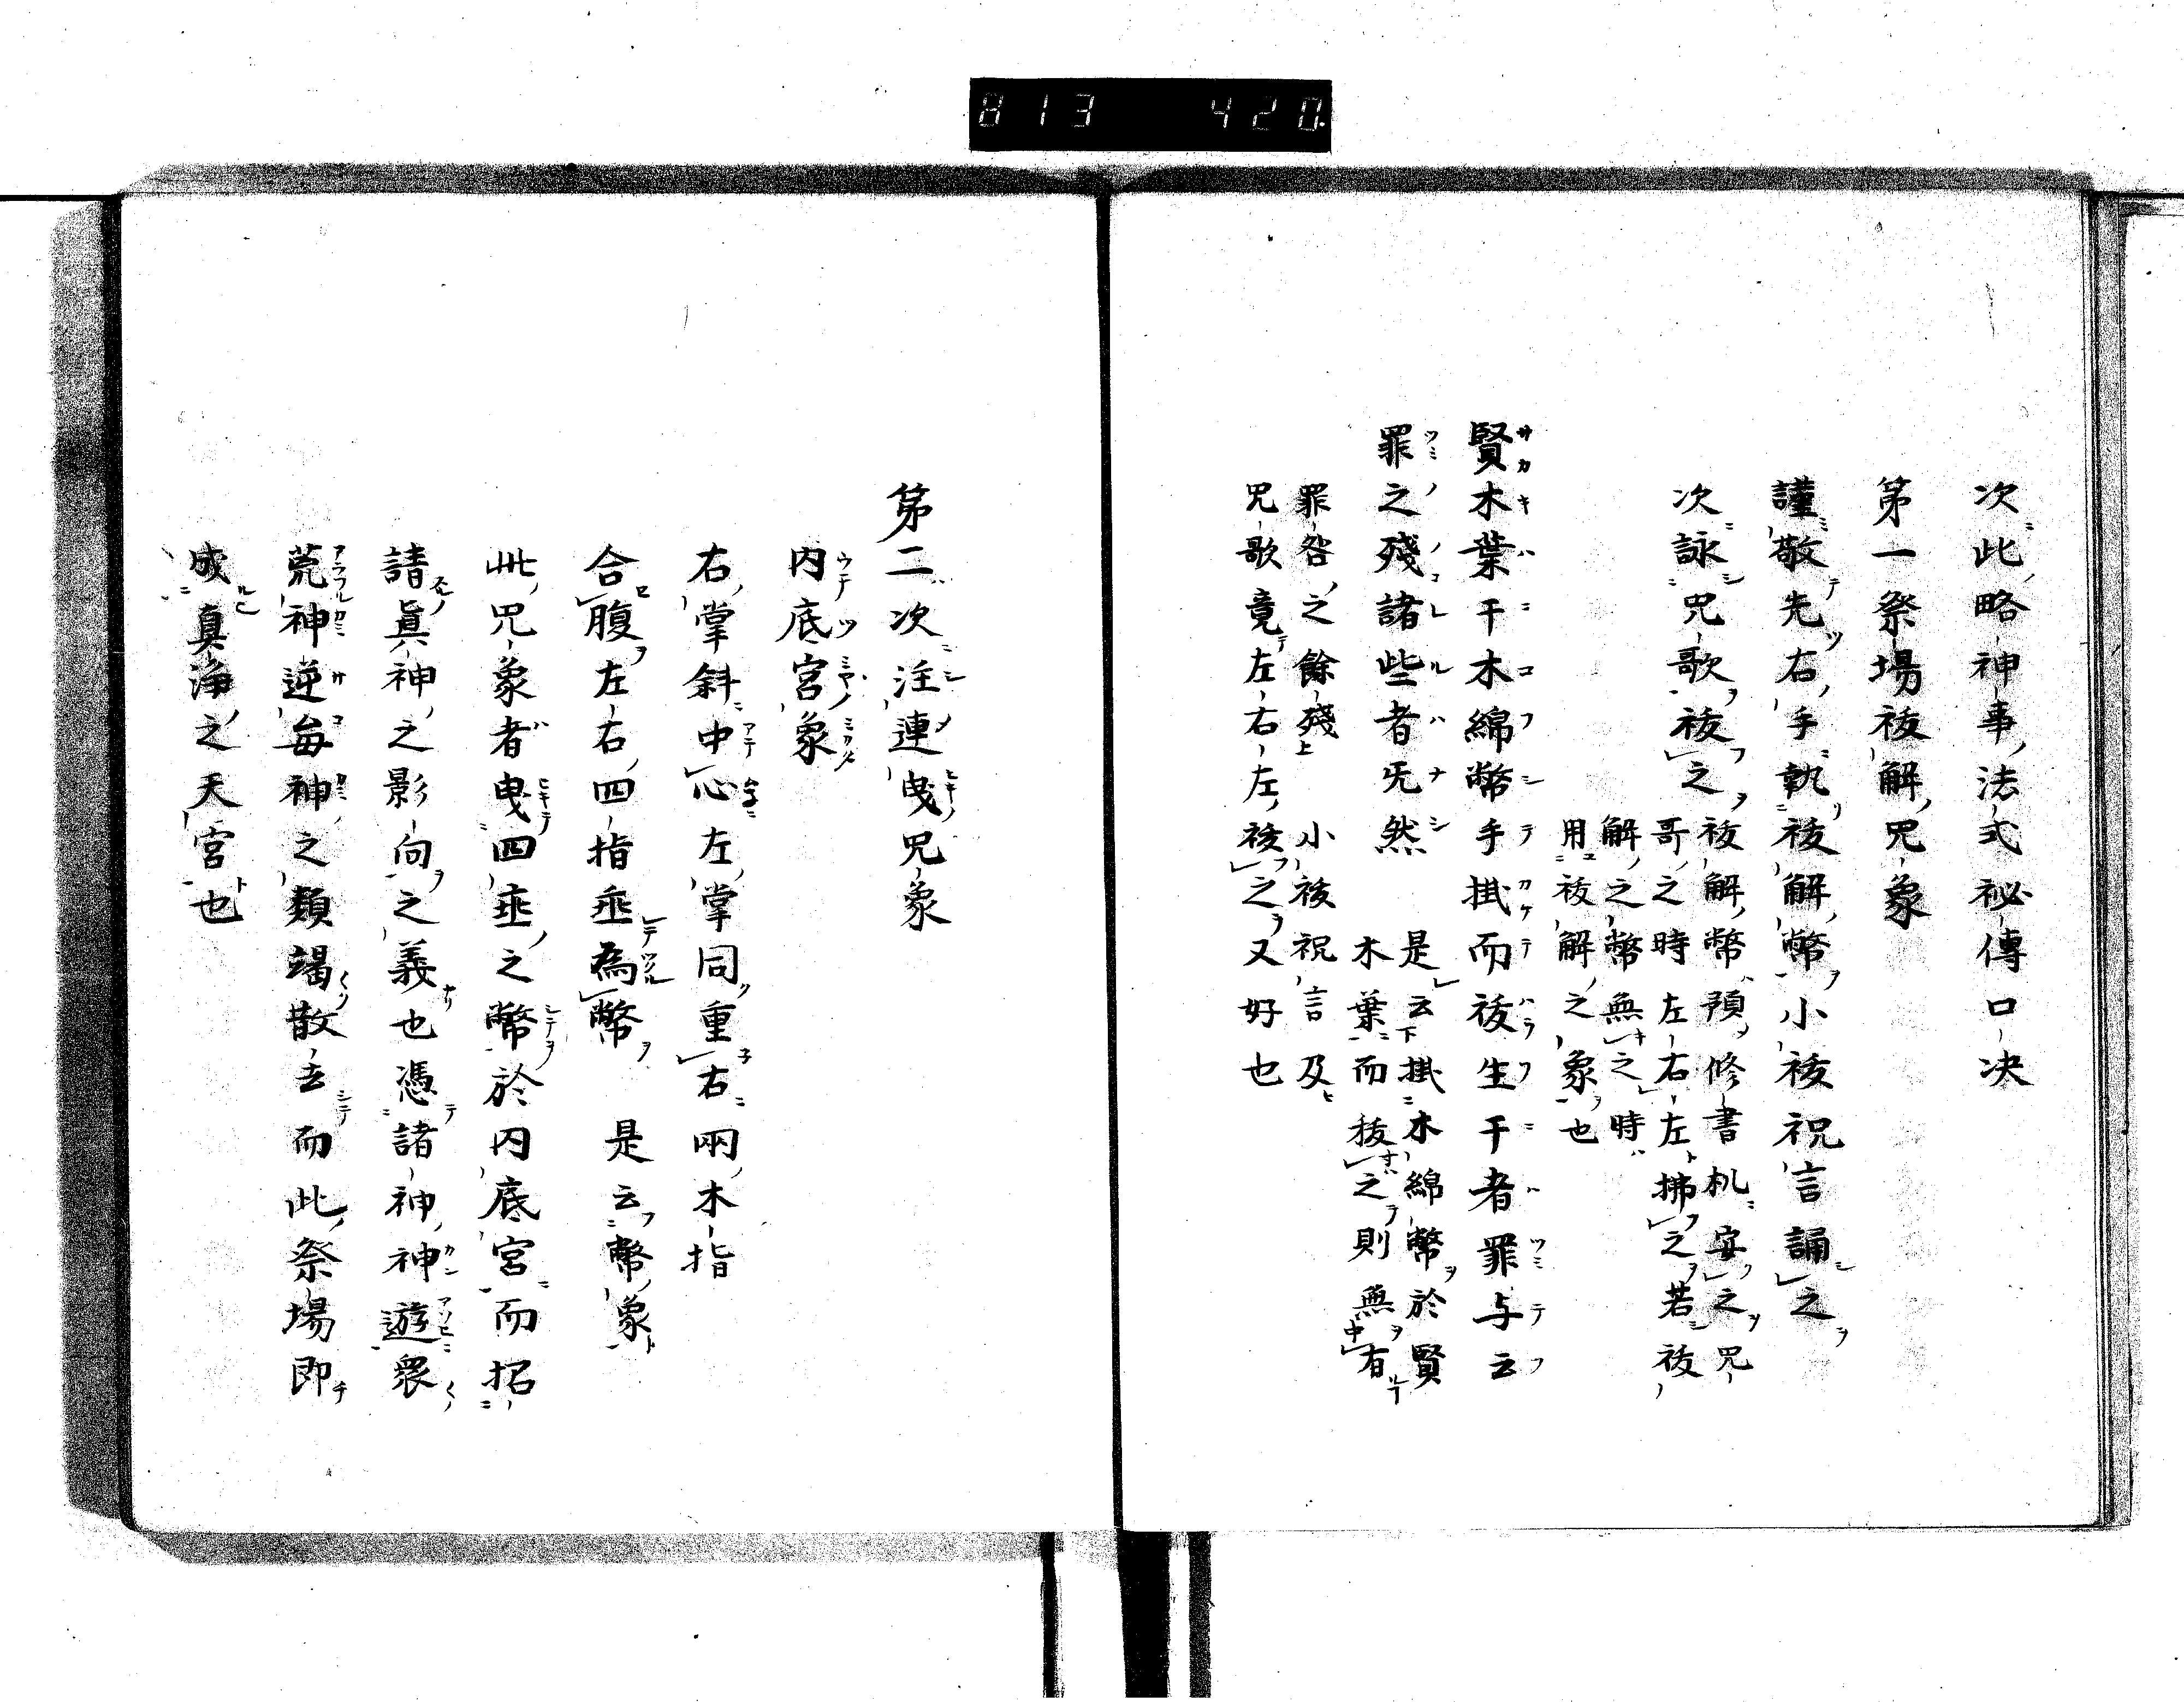 813 420
次此略神事法式祕傳口决
第一祭場祓解咒象
謹敬先右手執祓解幣小祓祝言誦之
次詠咒歌祓之祓解幣預修書机安之咒
哥之時左右左拂之若祓
解之幣無之時
用祓解之象也
賢木葉干木綿幣手掛而祓生干者罪与云
罪之殘諸些者旡然
是云掛木綿幣於賢
木葉而祓之則無有
罪咎之餘殘 小祓祝言及
咒歌竟左右左祓之又好也
第二次注連曳咒象
内底宮象
右掌斜中心左掌同重右兩木指
合腹左右四指垂為幣 是云幣象
此咒象者曳四垂之幣於内底宮而招
請眞神之影向之義也憑諸神神遊衆
荒神逆每神之類竭散去而此祭場即
成真淨之天宮也